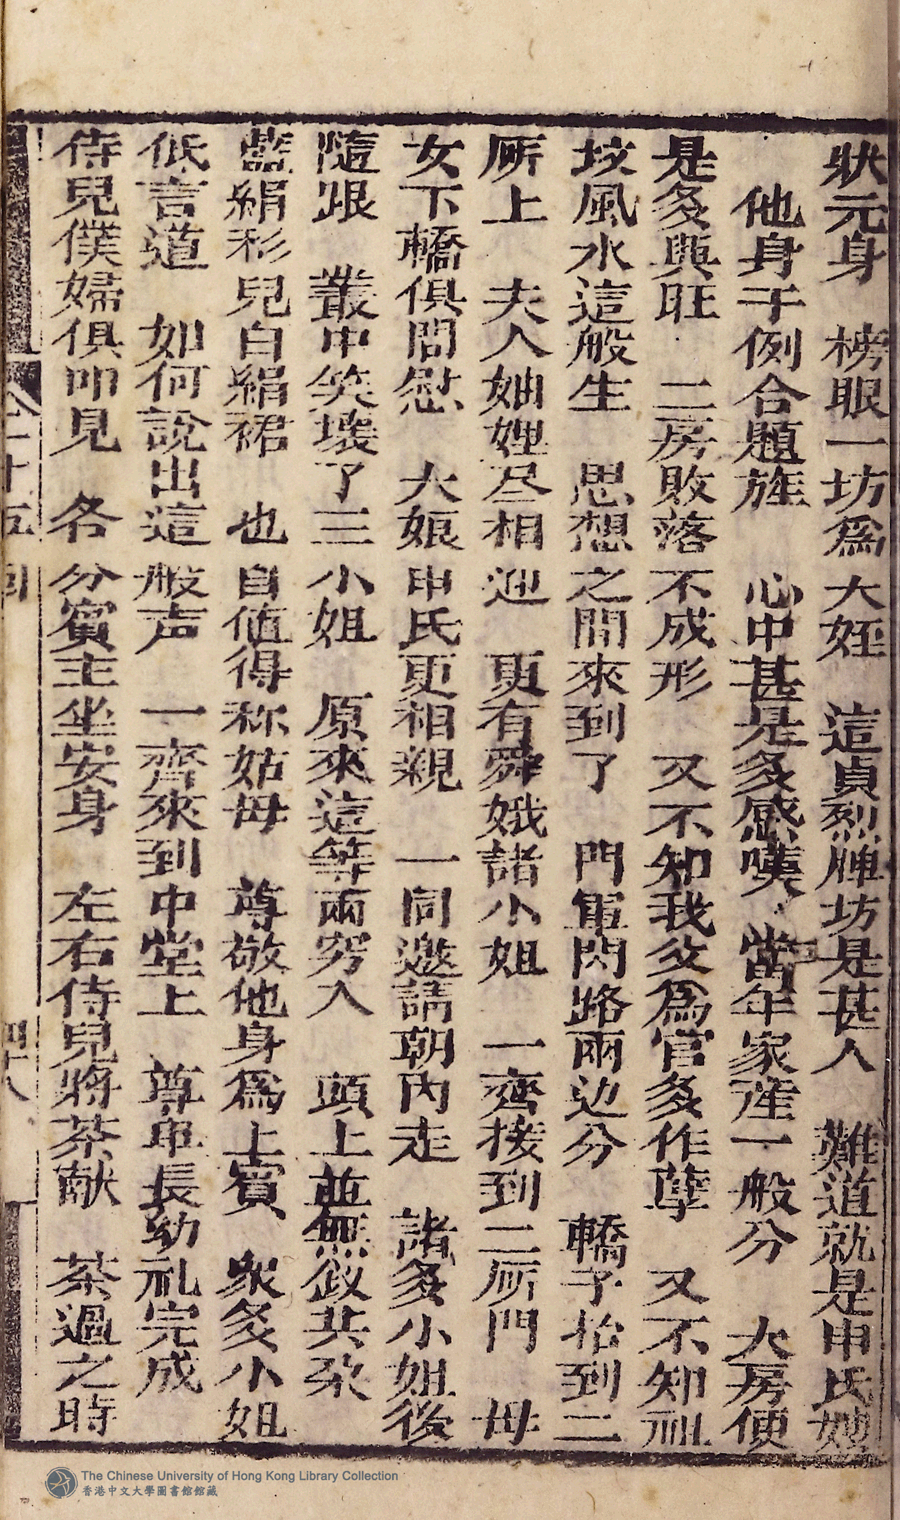 狀元身　榜眼一坊為大姪　這貞烈牌坊是甚人　難道就是申氏嫂
他身干例合題旌　心中甚是多感嘆　當年家產一般分　大房便
是多興旺　二房敗落不成形　又不知我父為官多作孽　又不知祖
坟風水這般生　思想之間來到了　門軍閃路兩边分　轎子抬到二
厛上　夫人妯娌尽相迎　更有舜娥諸小姐　一齊接到二厛門　母
女下轎俱問慰　大娘申氏更相親　一同邀請朝內走　諸多小姐後
隨跟　叢中笑壞了三小姐　原來這等兩窮人　頭上並無釵共朶
藍絹衫兒白絹裙　也自値得称姑母　尊敬他身為上賓　衆多小姐
低言道　如何說出這般声　一齊來到中堂上　尊卑長幼礼完成
侍兒僕婦俱叩見　各分賓主坐安身　左右侍兒將茶献　茶過之時
二十五回
四十八
The Chinese University of Hong Kong Library Collection
香港中文大學圖書館館藏